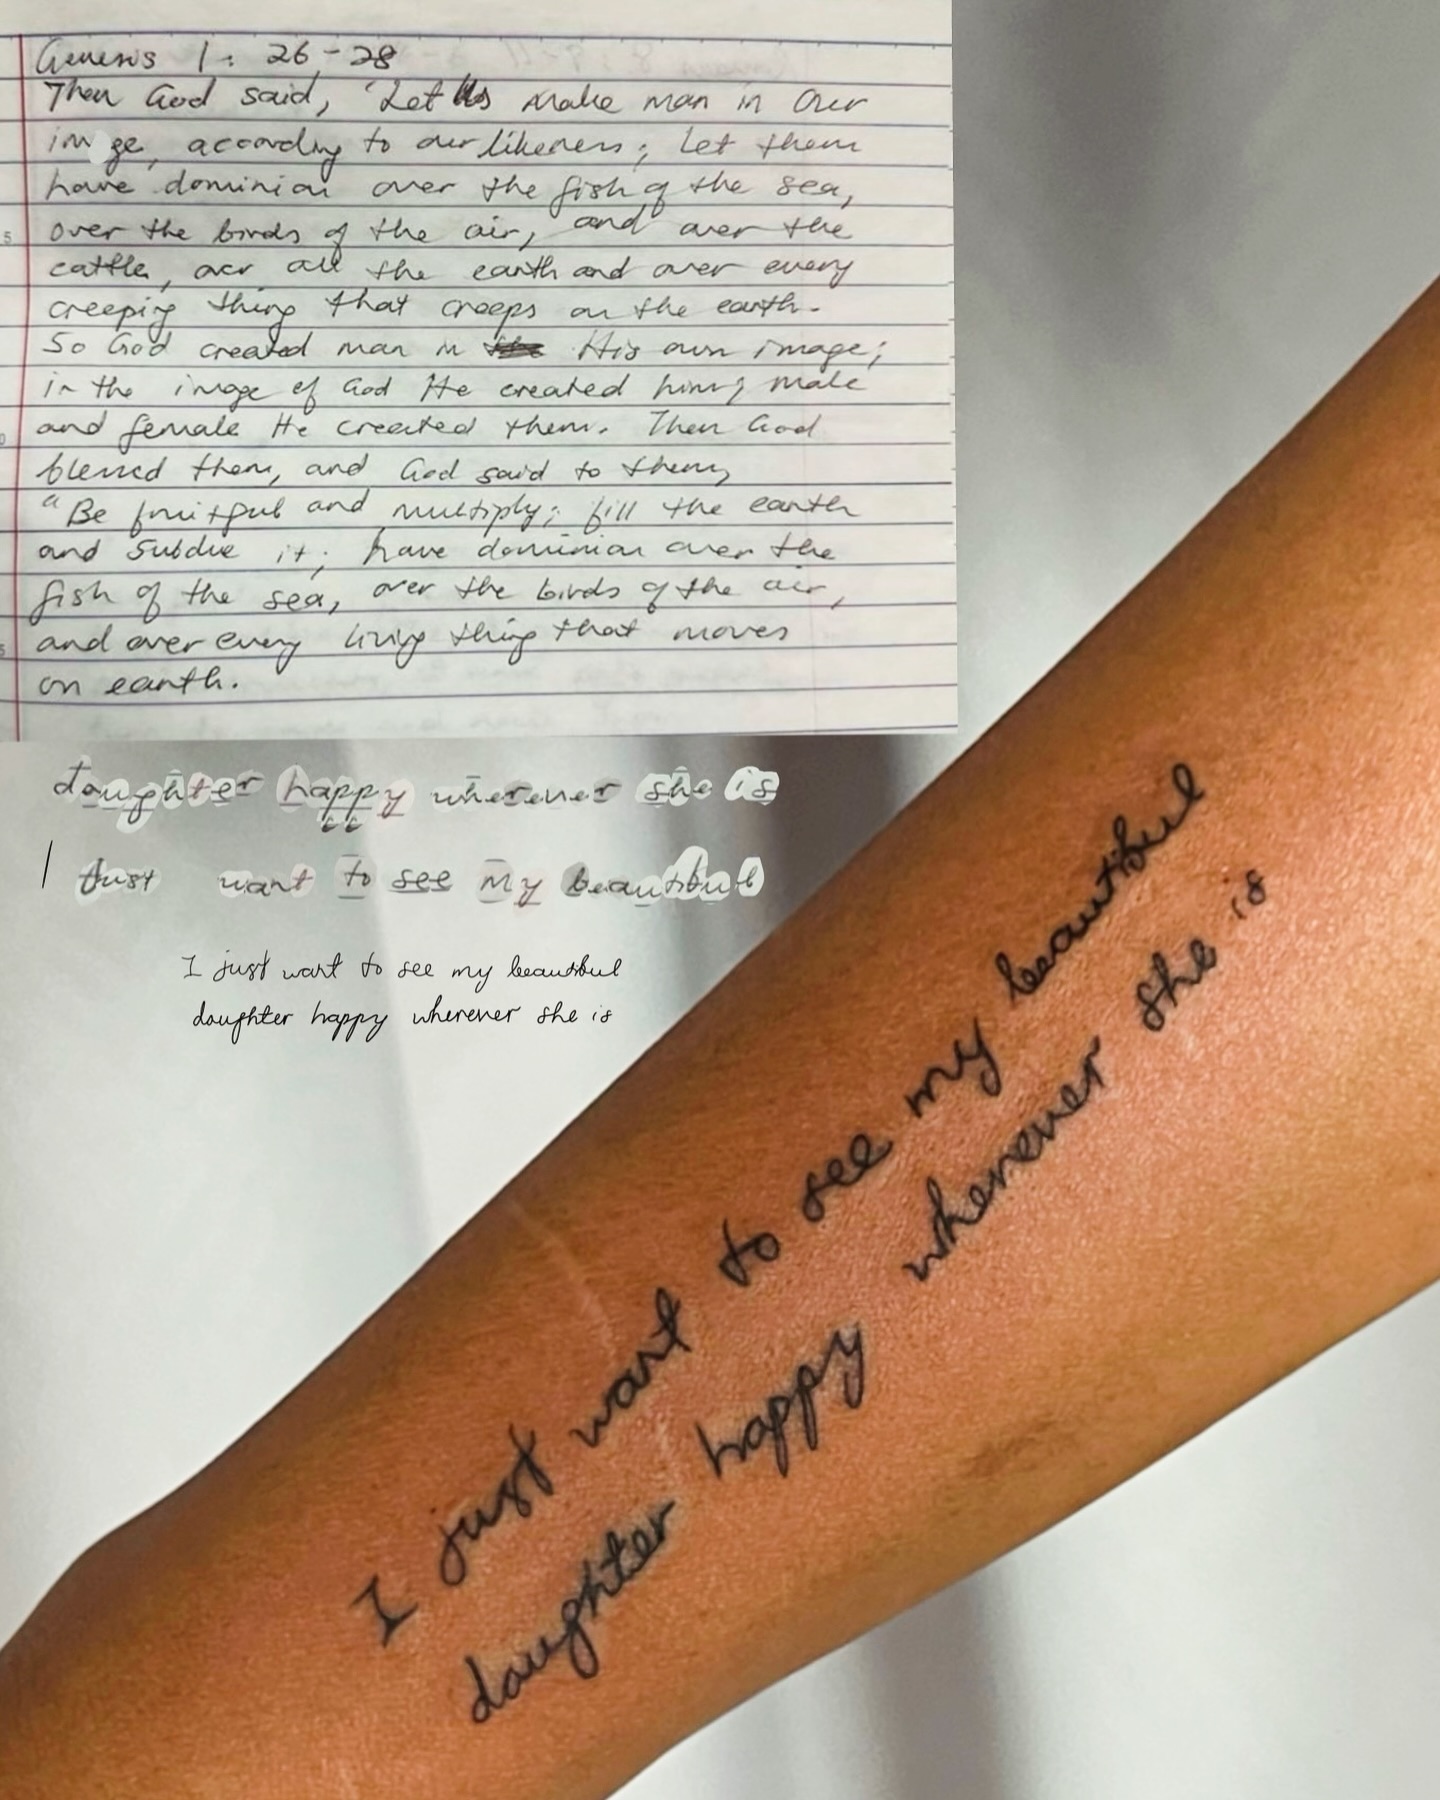 Genesis 1: 26-28
Then God said, "Let Us make man in Our
image, according to our likeness; let them
have dominion over the fish of the sea,
5 over the birds of the air, and over the
cattle, over all the earth and over every
creeping thing that creeps on the earth.
So God created man in His own image;
in the image of God He created him; male
and female He created them. Then God
blessed them, and God said to them,
"Be fruitful and multiply; fill the earth
and subdue it; have dominion over the
fish of the sea, over the birds of the air,
and over every living thing that moves
on earth.
daughter happy wherever she is
I just want to see my beautiful
I just want to see my beautiful
daughter happy wherever she is
I just want to see my beautiful
daughter happy wherever she is